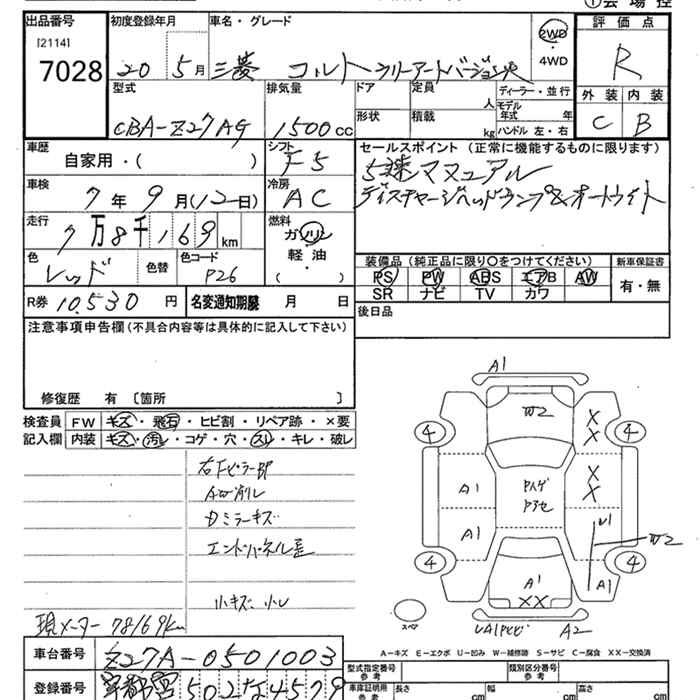 ①会 場 控
出品番号
初度登録年月
車名・グレード
評 価 点
[2114]
7028
20 5月 三菱 コルト ラリーアートバージョンR
2WD
・
4WD
R
型式
排気量
ドア
定員
人
ディーラー・並行
外 装 内 装
モデル
年式 年
形状
積載
kg
ハンドル 左・右
CBA-Z27AG
1500cc
C B
車歴
自家用・( )
シフト
F5
セールスポイント (正常に機能するものに限ります)
5速マニュアル
ディスチャージヘッドランプ&オートライト
車検
7 年 9 月(12日)
冷房
AC
走行
7万8千169km
燃料
ガソリン
・
軽 油
( )
色
レッド
色替
色コード
P26
装備品 (純正品に限り○をつけてください)
新車保証書
PS PW ABS エアB AW
SR ナビ TV カワ
有・無
R券 10.530 円
名変通知期限 月 日
後日品
注意事項申告欄 (不具合内容等は具体的に記入して下さい)
修復歴 有 〔箇所 〕
検査員
記入欄
FW キズ・飛石・ヒビ割・リペア跡・×要
内装 キズ・汚レ・コゲ・穴・スレ・キレ・破レ
右Fピラー部
Aロ削レ
Dミラーキズ
エンドパネル歪
小キズ 小レ
現メーター 78169km
A1
W2
X
X
4 4
A1
X
X
A1
U1
W2
4 4
A1
XX
A1
スペア
A2
A-キズ E-エクボ U-凹み W-補修跡 S-サビ C-腐食 XX-交換済
車台番号
Z27A-0501003
登録番号
宇都宮502な4579
型式指定番号
参 考
類別区分番号
参 考
車庫証明用
参 考
長さ
cm
幅
cm
高さ
cm